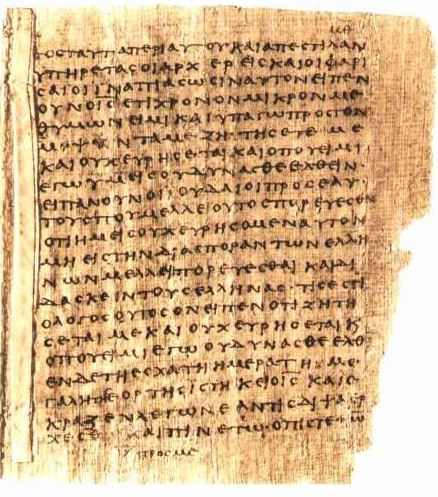 ΜΕ
ΤΟϹΤΑΥΤΑΠΕΡΙΑΥΤΟΥΚΑΙΑΠΕϹΤΙΛΑΝ
ΥΠΗΡΕΤΑϹΟΙΑΡΧΕΡΕΙϹΚΑΙΟΙΦΑΡΙ
ϹΑΙΟΙΙΝΑΠΙΑϹΩϹΙΝΑΥΤΟΝΕΙΠΕΝ
ΟΥΝΟΙϹΕΤΙΧΡΟΝΟΝΜΙΚΡΟΝΜΕ
ΘΥΜΩΝΕΙΜΙΚΑΙΥΠΑΓΩΠΡΟϹΤΟΝ
ΠΕΜΨΑΝΤΑΜΕΖΗΤΗϹΕΤΕΜΕ
ΚΑΙΟΥΧΕΥΡΗϹΕΤΑΙΚΑΙΟΠΟΥΕΙΜΙ
ΕΓΩΥΜΕΙϹΟΥΔΥΝΑϹΘΕΕΛΘΕΙΝ·
ΕΙΠΑΝΟΥΝΟΙΙΟΥΔΑΙΟΙΠΡΟϹΕΑΥ
ΤΟΥϹΠΟΥΜΕΛΛΕΙΟΥΤΟϹΠΟΡΕΥΕϹΘΑΙ
ΟΤΙΗΜΕΙϹΟΥΧΕΥΡΗϹΟΜΕΝΑΥΤΟΝ
ΜΗΕΙϹΤΗΝΔΙΑϹΠΟΡΑΝΤΩΝΕΛΛΗ
ΝΩΝΜΕΛΛΕΙΠΟΡΕΥΕϹΘΑΙΚΑΙΔΙ
ΔΑϹΚΕΙΝΤΟΥϹΕΛΛΗΝΑϹ·ΤΙϹΕϹΤΙ
ΟΛΟΓΟϹΟΥΤΟϹΟΝΕΙΠΕΝΟΤΙΖΗΤΗ
ϹΕΤΑΙΜΕΚΑΙΟΥΧΕΥΡΗϹΕΤΑΙΚ
ΟΠΟΥΕΙΜΙΕΓΩΟΥΔΥΝΑϹΘΕΕΛΘ
ΕΝΔΕΤΗΕϹΧΑΤΗΗΜΕΡΑΤΗΜΕ
ΓΑΛΗΤΗϹΕΟΡΤΗϹΙϹΤΗΚΕΙΟΙϹΚΑΙΕ
ΚΡΑΖΕΝΛΕΓΩΝΕΑΝΤΙϹΔΙΨΑΕΡ
ΧΕϹΘΩΚΑΙΠΙΝΕΤΩ·ΟΠΙϹΤΕΥΩ
ΠΡΟϹΜΕ